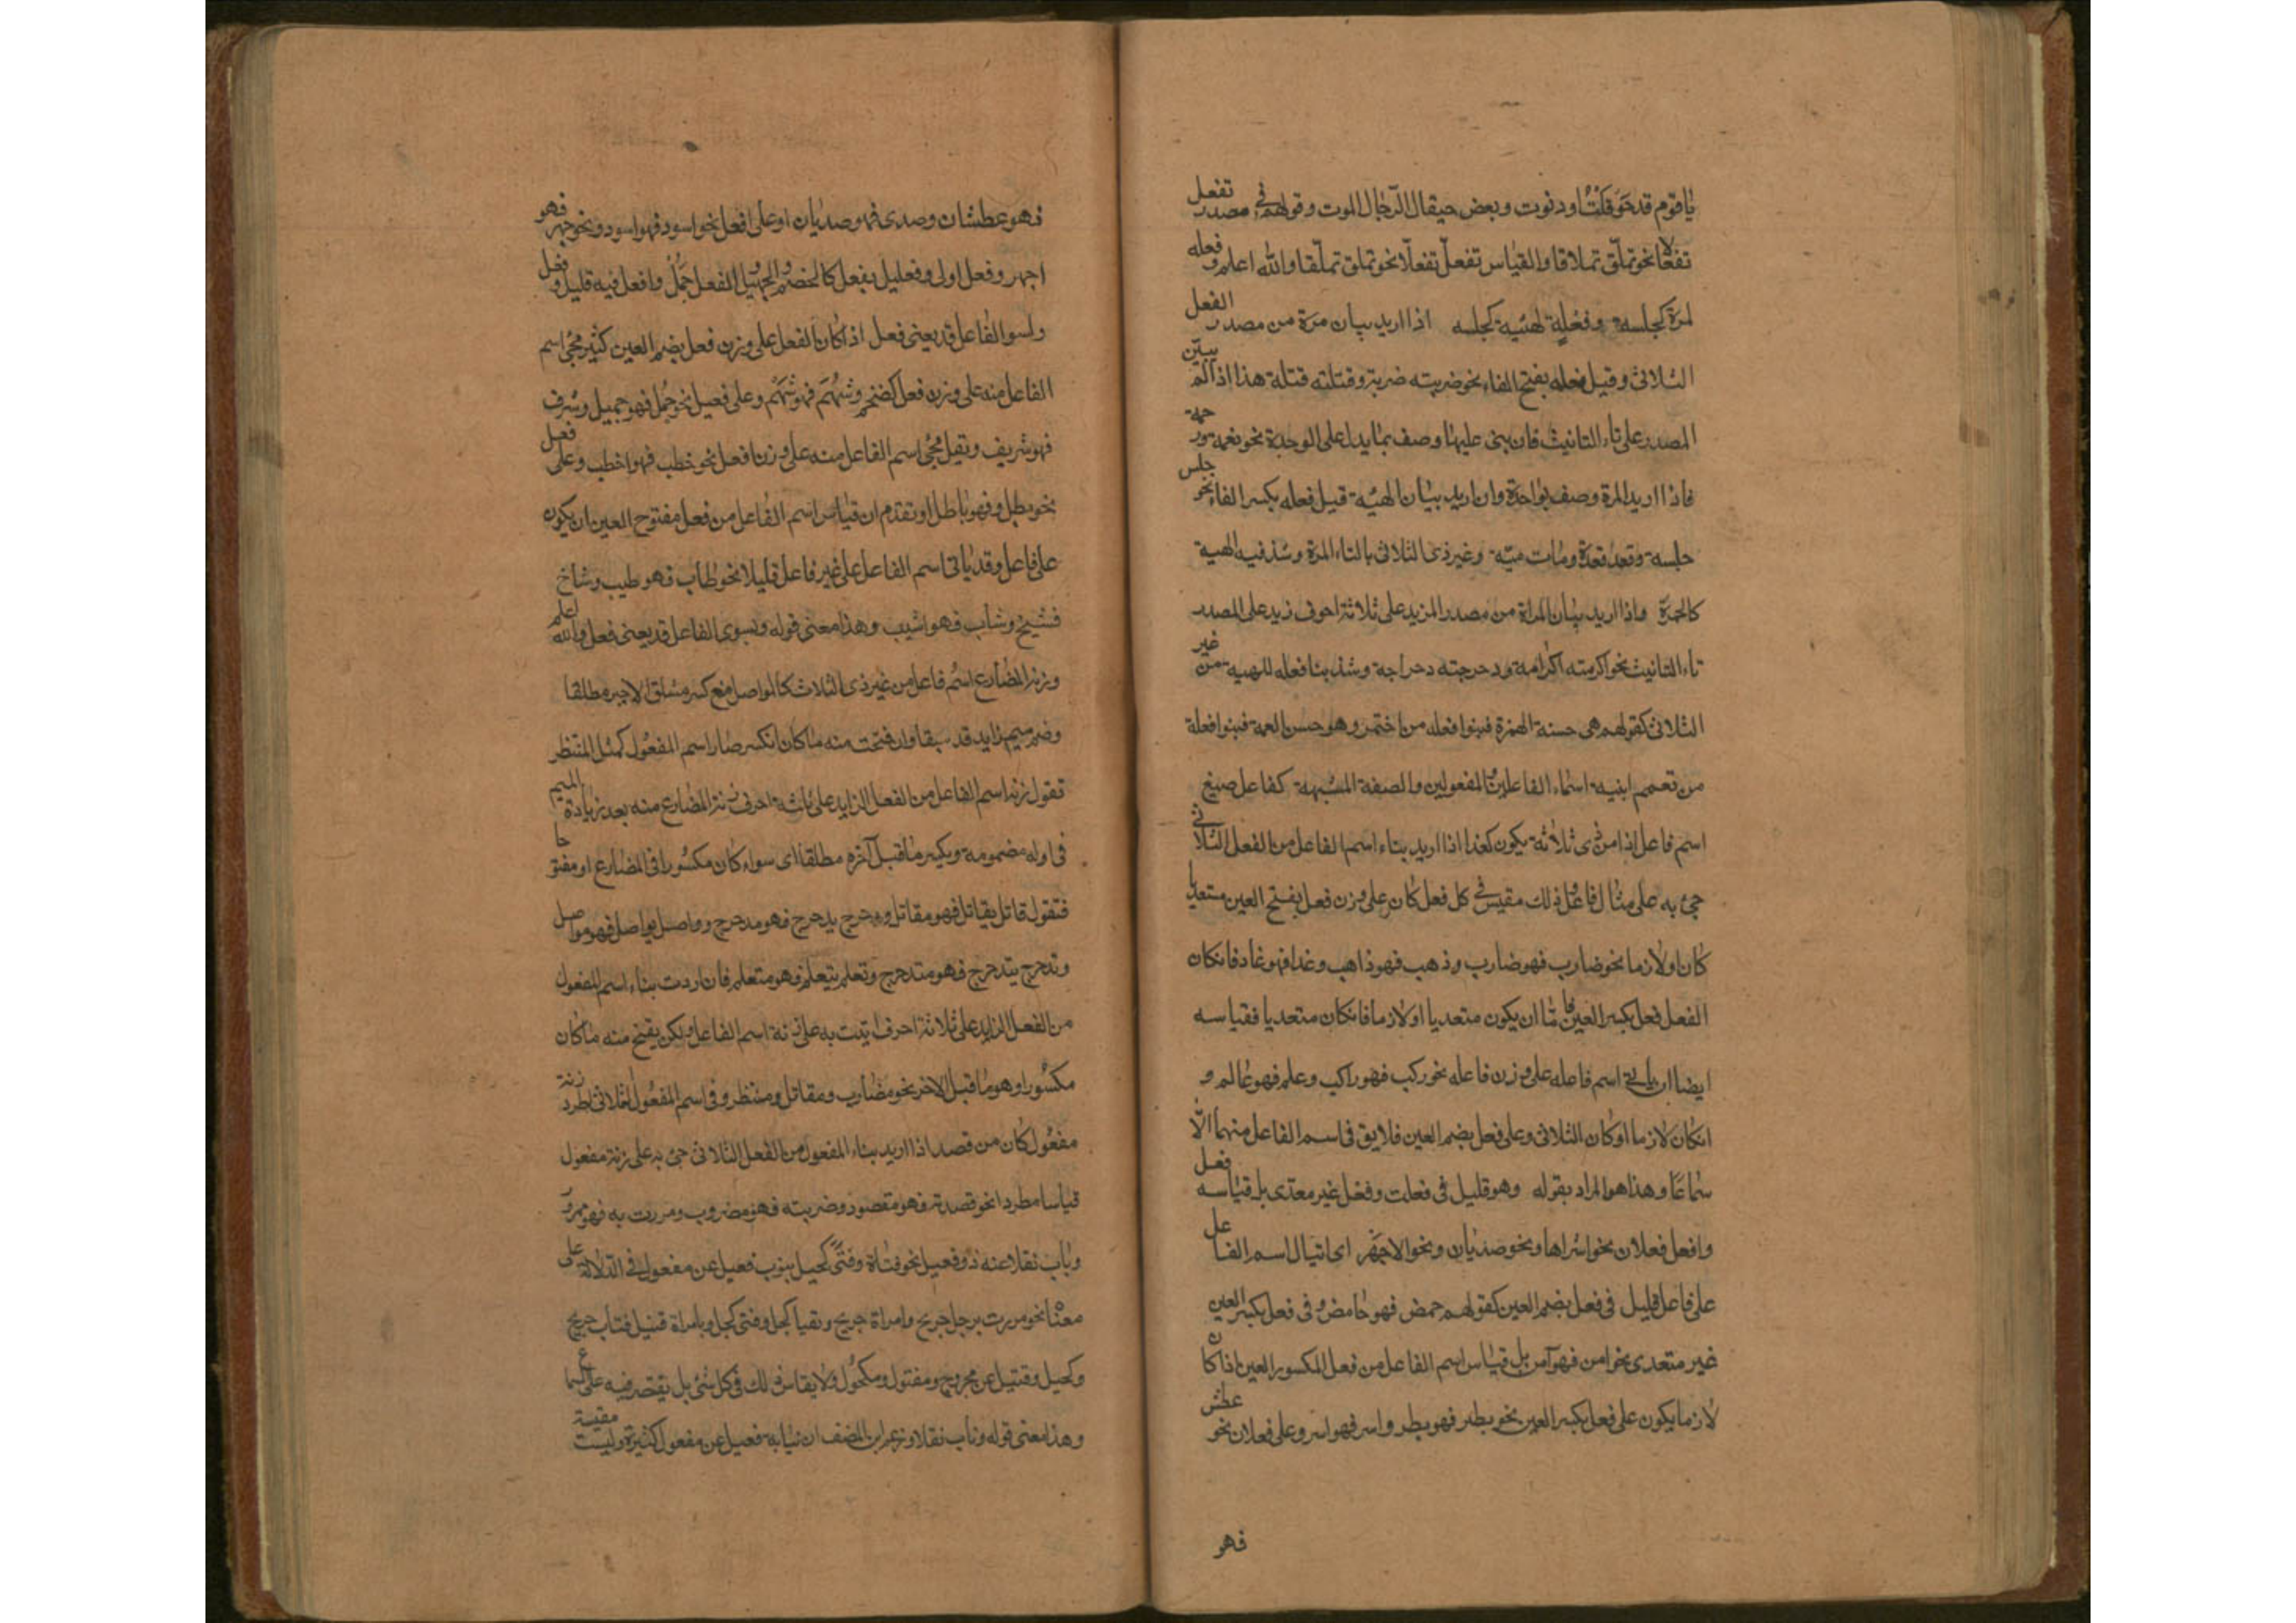 يا قوم قد حوقلت او دنوت وبعض حيقال الرجال الموت وقولهم في مصدر تفعل
تفعالا نحو تملق تملاقا والقياس تفعل تفعلا نحو تملق تملقا والله اعلم وفعله
لمرة كجلسه وفعلة لهيئه كجلسه اذا اريد بيان مرة من مصدر الفعل
الثلاثى وقيل فعله بفتح الفاء نحو ضربته ضربة وقتلته قتلة هذا اذا لم يبين
المصدر على تاء التانيث فان بنى عليها وصف بما يدل على الوحدة نحو نعمة ورحمة
فاذا اريد المرة وصف بواحدة وان اريد بيان الهيئه قيل فعله بكسر الفاء نحو جلس
جلسه وقعد قعدة ومات ميتة وغير ذى الثلاثى بالتاء المرة وشذ فيه الهيئة
كالخمرة واذا اريد بيان المراة من مصدر المزيد على ثلاثة احرف زيد على المصدر
تاء التانيث نحو اكرمته اكرامة ودحرجته دحراجة وشذ بنا فعله للهيئة من غير
الثلاثى كقولهم هى حسنة الخمرة فبنوا فعله من اختمر وهو حسن العمة فبنوا فعلة
من تعمم ابنية اسماء الفاعلين والمفعولين والصفة المشبهة كفاعل صيغ
اسم فاعل اذا من ذى ثلاثة يكون كغذا اذا اريد بناء اسم الفاعل من الفعل الثلاثى
جئ به على مثال فاعل ذلك مقيس في كل فعل كان على وزن فعل بفتح العين متعديا
كان او لازما نحو ضارب فهو ضارب وذهب فهو ذاهب وغذا فهو غاذ فانكان
الفعل فعل بكسر العين فاما ان يكون متعديا او لازما فانكان متعديا فقياسه
ايضا ان ياتى اسم فاعله على وزن فاعله نحو ركب فهو راكب وعلم فهو عالم و
انكان لازما او كان الثلاثى وعلى فعل بضم العين فلا يق فى اسم الفاعل منهما الا
سماعا وهذا هو المراد بقوله وهو قليل فى فعلت وفعل غير معدى بل قياسه فعل
وافعل فعلان نحو اشراها ونحو صديان ونحو الاجهر اى اتيال اسم الفاعل
على فاعل قليل فى فعل بضم العين كقولهم حمض فهو حامض وفى فعل بكسر العين
غير متعدى نحو امن فهو آمن بل قياس اسم الفاعل من فعل المكسور العين اذا كان
لازما يكون على فعل بكسر العين نحو بطر فهو بطر واسر فهو اسر وعلى فعلان نحو عطش
فهو
فهو عطشان وصدى فهو صديان او على افعل نحو اسود فهو اسود ونحو جهر فهو
اجهر وفعل اولى وفعليل بفعل كالضخم والجميل والفعل جمل وافعل فيه قليل وفعل
ولسوا الفاعل قد يعنى فعل اذا كان الفعل على وزن فعل بضم العين كثير مجئ اسم
الفاعل منه على وزن فعل كضخم وشهم فهو شهم وعلى فعيل نحو جمل فهو جميل وشرف
فهو شريف ويقل مجئ اسم الفاعل منه على وزن افعل نحو خطب فهو اخطب وعلى فعل
نحو بطل فهو باطل او تقدم ان قياس اسم الفاعل من فعل مفتوح العين ان يكون
على فاعل وقد ياتى اسم الفاعل على غير فاعل قليلا نحو طاب فهو طيب وشاخ
فشيخ وشاب فهو اشيب وهذا معنى قوله وبسوى الفاعل قد يعنى فعل والله اعلم
وزنه المضارع اسم فاعل من غير ذى الثلاث كالمواصل مع كسر متلو الاخير مطلقا
وضم ميم زايد قد سبقا وان فتحت منه ما كان انكسر صار اسم المفعول كمثل المنتظر
تقول زنة اسم الفاعل من الفعل الزايد على ثلثة احرف زنة المضارع منه بعد زيادة الميم
فى اوله مضمومه ويكسر ما قبل آخره مطلقا اى سواء كان مكسورا فى المضارع او مفتوحا
فتقول قاتل يقاتل فهو مقاتل ودحرج يدحرج فهو مدحرج وواصل يواصل فهو مواصل
وتدحرج يتدحرج فهو متدحرج وتعلم يتعلم فهو متعلم فان اردت بناء اسم المفعول
من الفعل الزايد على ثلاثة احرف اتيت به على زنة اسم الفاعل ولكن يفتح منه ما كان
مكسورا وهو ما قبل الاخر نحو مضارب ومقاتل ومنتظر وفى اسم المفعول الثلاثى اطرد زنة
مفعول كان من قصد اذا اريد بناء المفعول من الفعل الثلاثى جئ به على زنة مفعول
قياسا مطردا نحو قصدته فهو مقصود وضربته فهو مضروب ومررت به فهو ممرور
وناب نقلا عنه ذو فعيل نحو فتاة وفتى كحيل ينوب فعيل عن مفعول في الدلالة على
معناه نحو مررت برجل جريح وامراة جريح وفتاة كحيل وفتى كحيل وبامراة قتيل فناب جريح
وكحيل وقتيل عن مجروح ومفتول ومكحول ولا يقاس ذلك فى كل شئ بل يقتصر فيه على السماع
وهذا معنى قوله وناب نقلا وزعم ابن المصنف ان نيابة فعيل عن مفعول كثيرة وليست مقيسة